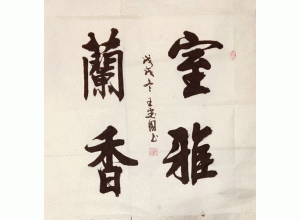 室雅
蘭香
戊戌冬王建國書